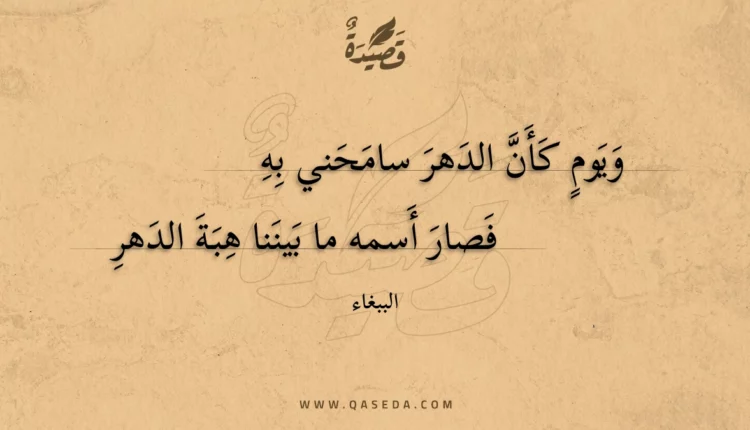 قَصِيْدَةٌ
وَيَومٍ كَأَنَّ الدَهرَ سامَحَني بِهِ
فَصارَ أَسمه ما بَينَنا هِبَةَ الدَهرِ
الببغاء
WWW.QASEDA.COM